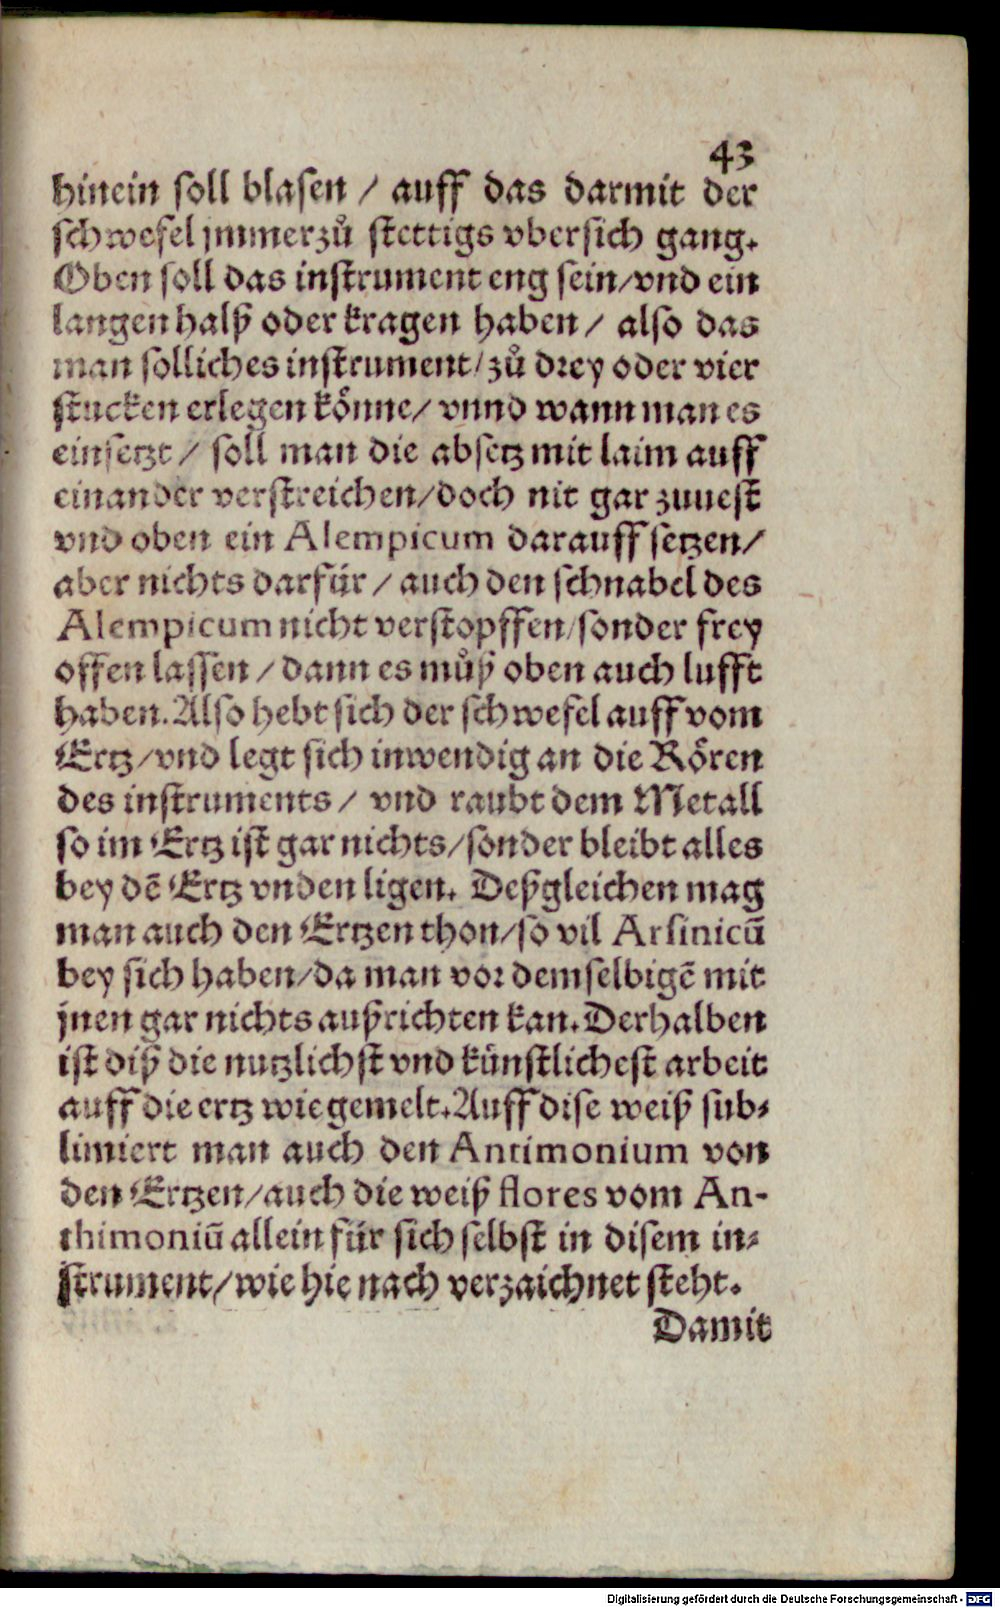 43
hinein soll blasen / auff das darmit der
schwefel jmmerzuͦ stettigs vbersich gang.
Oben soll das instrument eng sein/vnd ein
langen halß oder kragen haben / also das
man solliches instrument/zuͦ drey oder vier
stucken erlegen koͤnne/ vnnd wann man es
einsetzt / soll man die absetz mit laim auff
einander verstreichen/doch nit gar zuuest
vnd oben ein Alempicum darauff setzen/
aber nichts darfür / auch den schnabel des
Alempicum nicht verstopffen/sonder frey
offen lassen / dann es muͦß oben auch lufft
haben. Also hebt sich der schwefel auff vom
Ertz/vnd legt sich inwendig an die Roͤren
des instruments / vnd raubt dem Metall
so im Ertz ist gar nichts/sonder bleibt alles
bey dē Ertz vnden ligen. Deßgleichen mag
man auch den Ertzen thon/so vil Arsinicū
bey sich haben/da man vor demselbigē mit
jnen gar nichts außrichten kan. Derhalben
ist diß die nutzlichst vnd künstlichest arbeit
auff die ertz wie gemelt. Auff dise weiß sub-
limiert man auch den Antimonium von
den Ertzen/auch die weiß flores vom An-
thimoniū allein für sich selbst in disem in-
strument/wie hie nach verzaichnet steht.
Damit
Digitalisierung gefördert durch die Deutsche Forschungsgemeinschaft - DFG